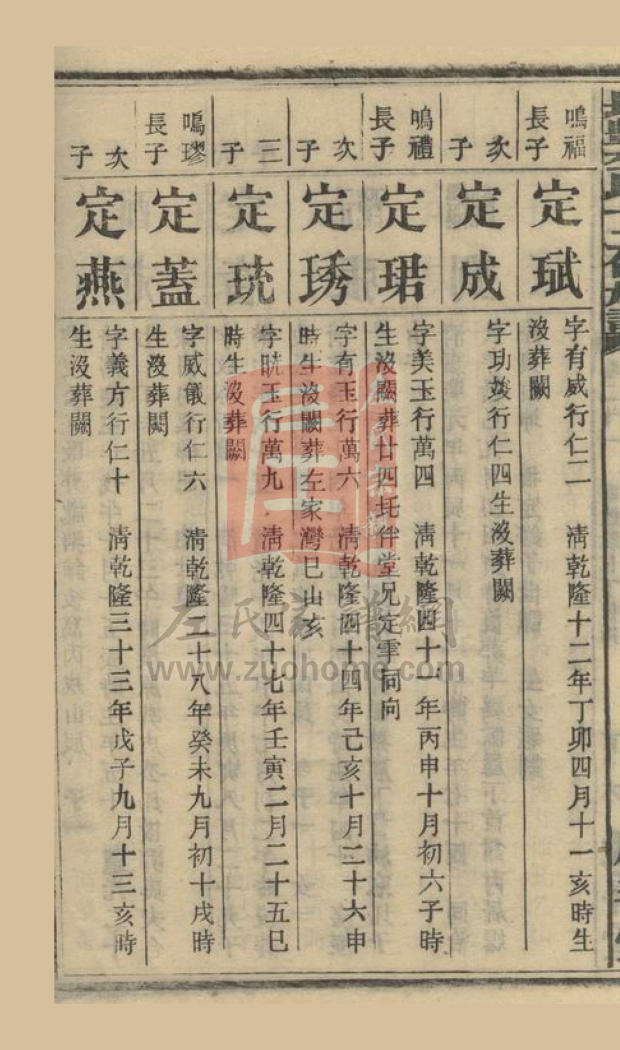 鳴福
長子
定珷
字有威行仁二 淸乾隆十二年丁卯四月十一亥時生
沒葬闕
次
子
定成
字功㚟行仁四生沒葬闕
鳴禮
長子
定珺
字美玉行萬四 淸乾隆四十一年丙申十月初六子時
生沒闕葬廿四圫伴堂兄定宰同向
次
子
定琇
字有玉行萬六 淸乾隆四十四年己亥十月二十六申
時生沒闕葬左家灣巳山亥
三
子
定珫
字晄玉行萬九 淸乾隆四十七年壬寅二月二十五巳
時生沒葬闕
鳴璆
長子
定蓋
字威儀行仁六 淸乾隆二十八年癸未九月初十戌時
生沒葬闕
次
子
定燕
字義方行仁十 淸乾隆三十三年戊子九月十三亥時
生沒葬闕
左氏族譜網
www.zuohome.com